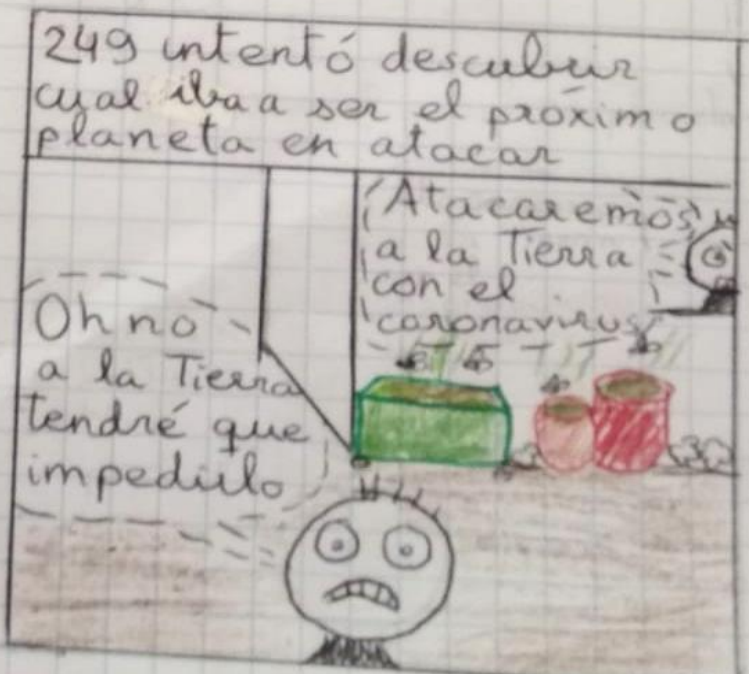 249 intentó descubrir
cual iba a ser el próximo
planeta en atacar
Atacaremos
a la Tierra
con el
coronavirus
Oh no
a la Tierra
tendré que
impedirlo